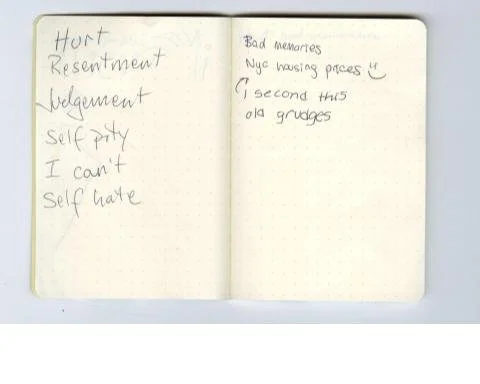 Hurt
Resentment
Judgement
Self pity
I can't
Self hate
Bad memories
Nyc housing prices
I second this
old grudges